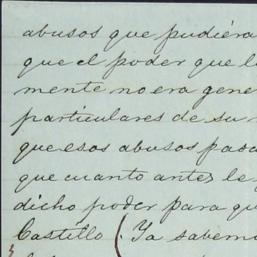 abusos que pudiéra
que el poder que l
mente no era gene
particulares de su
que esos abusos pasa
que cuanto antes le
dicho poder para qu
Castillo (Ya sabemo